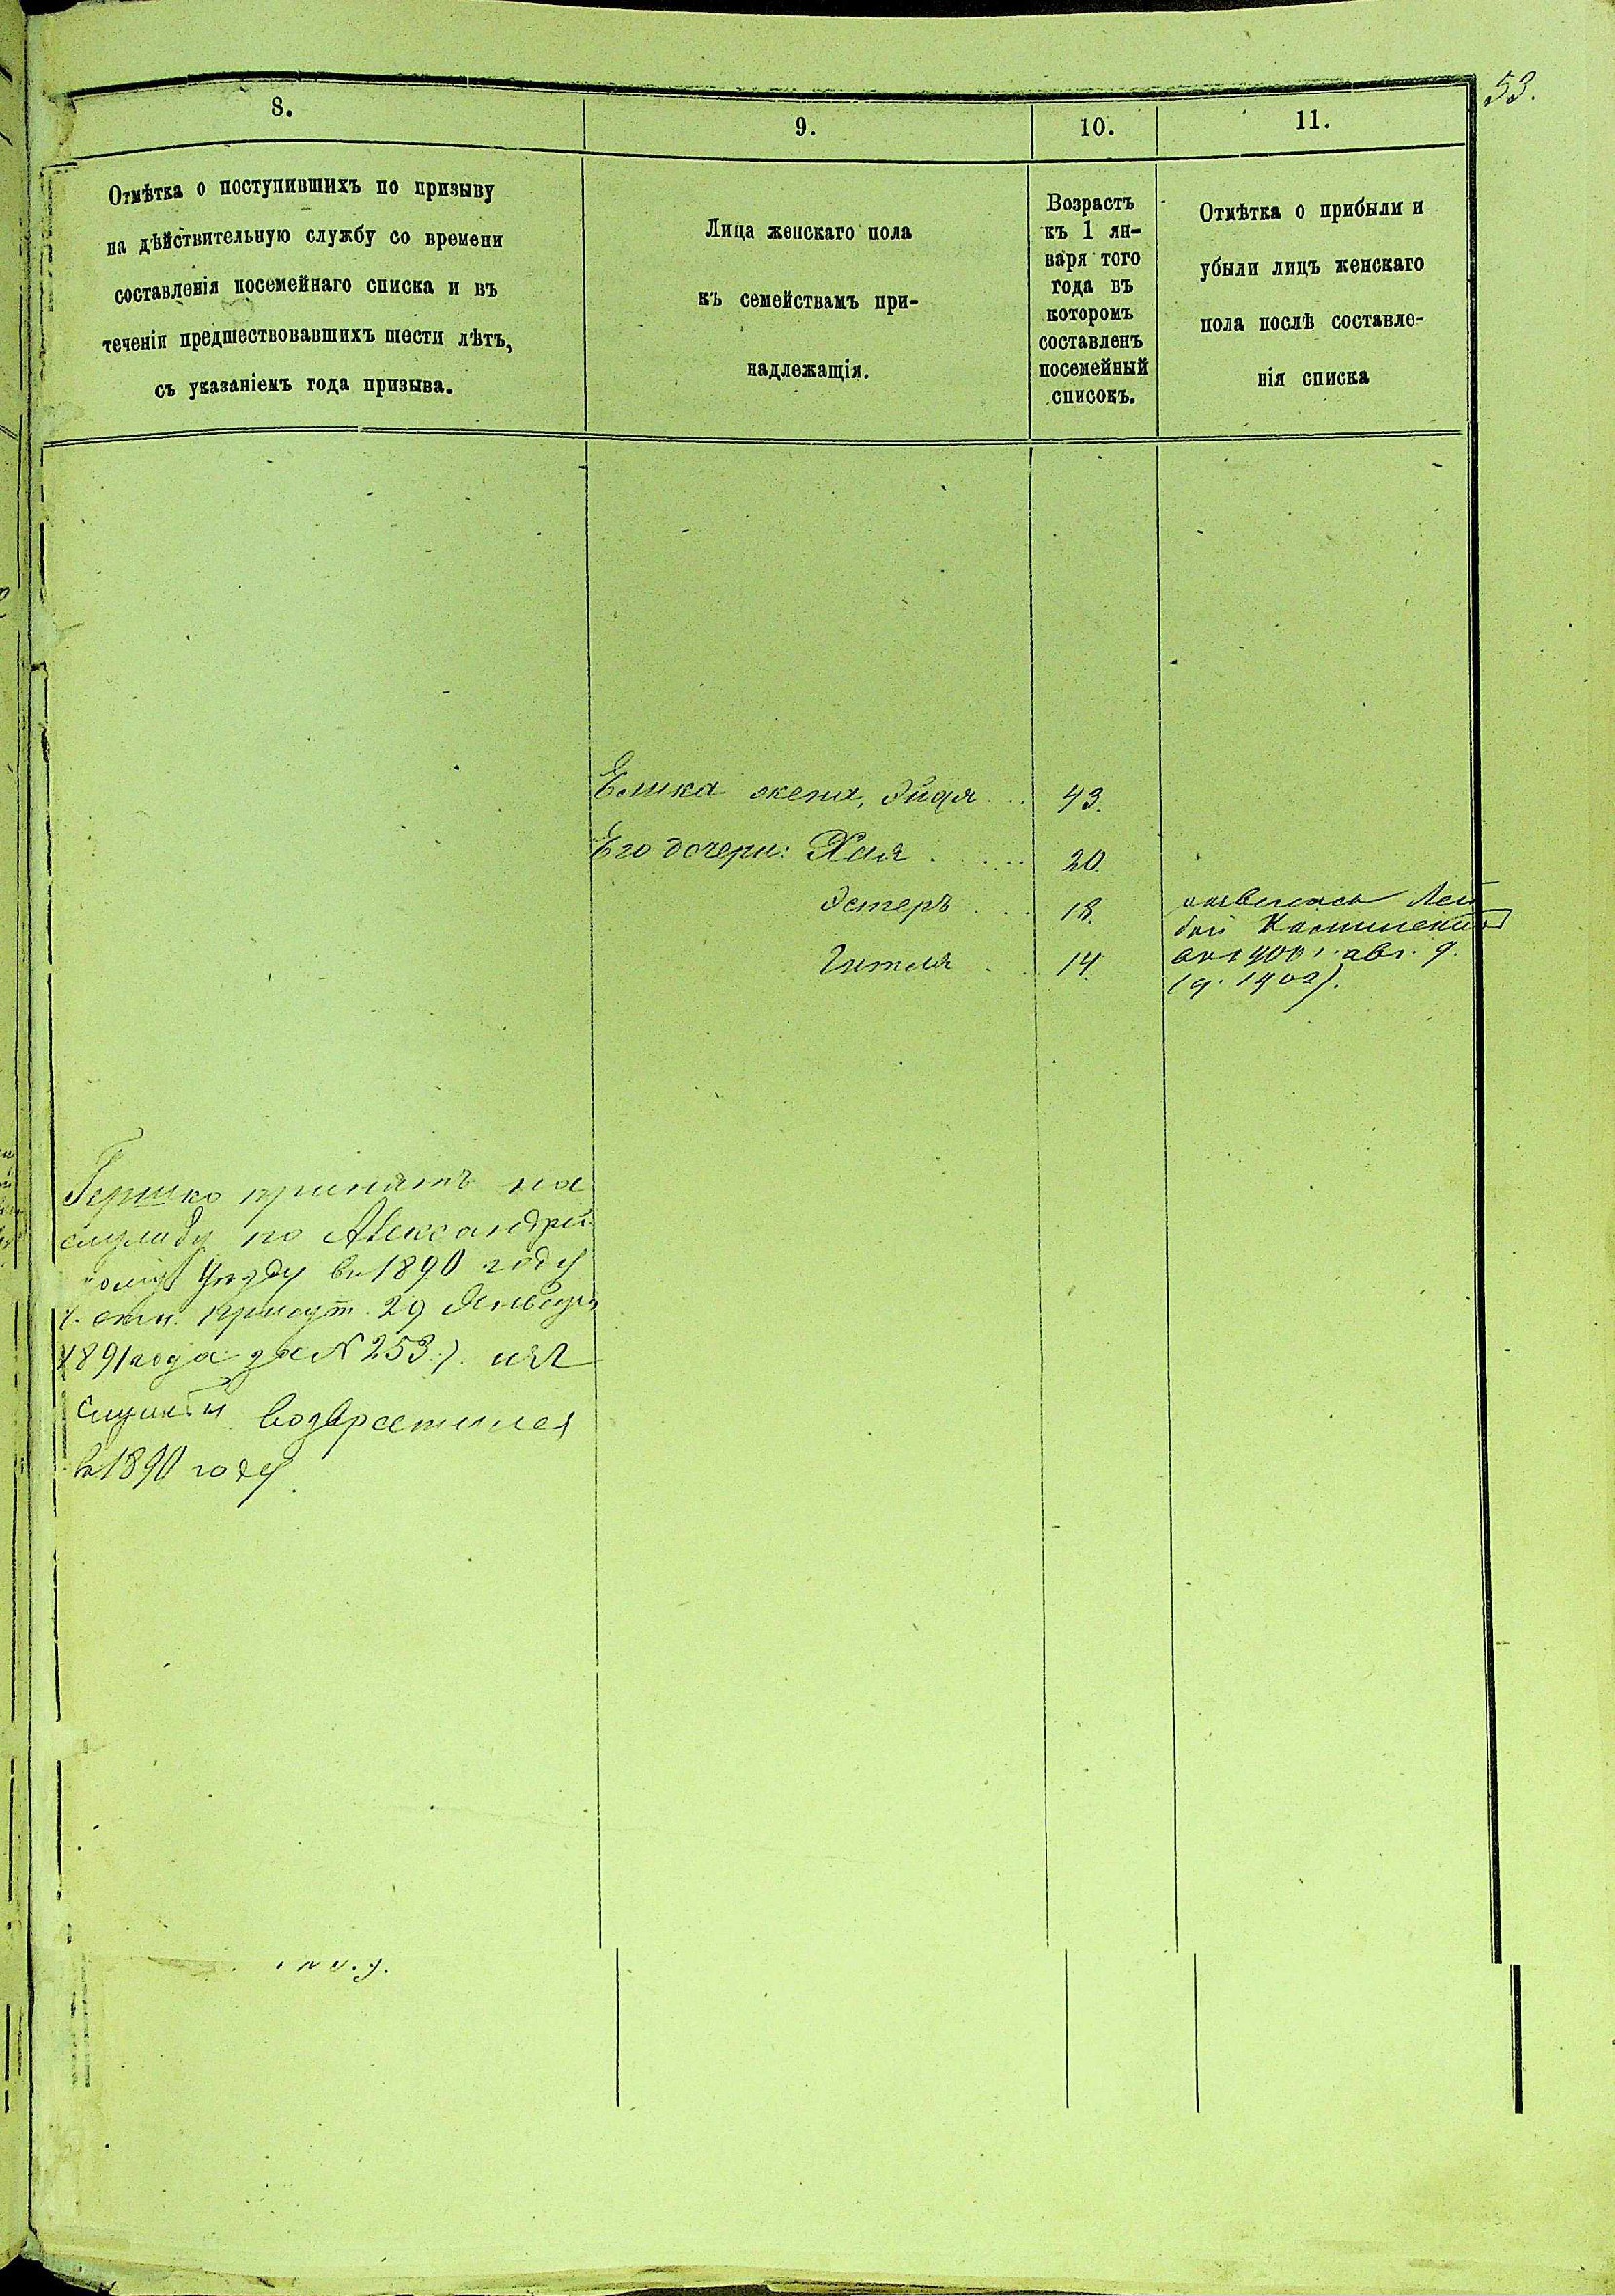 53.
8.
9.
10.
11.
Отмѣтка о поступившихъ по призыву
на дѣйствительную службу со времени
составленія посемейнаго списка и въ
теченіи предшествовавшихъ шести лѣтъ,
съ указаніемъ года призыва.
Лица женскаго пола
къ семействамъ при-
надлежащія.
Возрастъ
къ 1 ян-
варя того
года въ
которомъ
составленъ
посемейный
списокъ.
Отмѣтка о прибыли и
убыли лицъ женскаго
пола послѣ составле-
нія списка
жена, Эйдя 43.
Его дочери: Хая 20.
Эстеръ 18.
Гитля 14.
Лей
бой
авг. 9.
1902).
Гершко принятъ на
службу по Александрій
уѣзду въ 1890 году
29 Января
1891 года за № 253.).
службы возвратился
въ 1890 году.